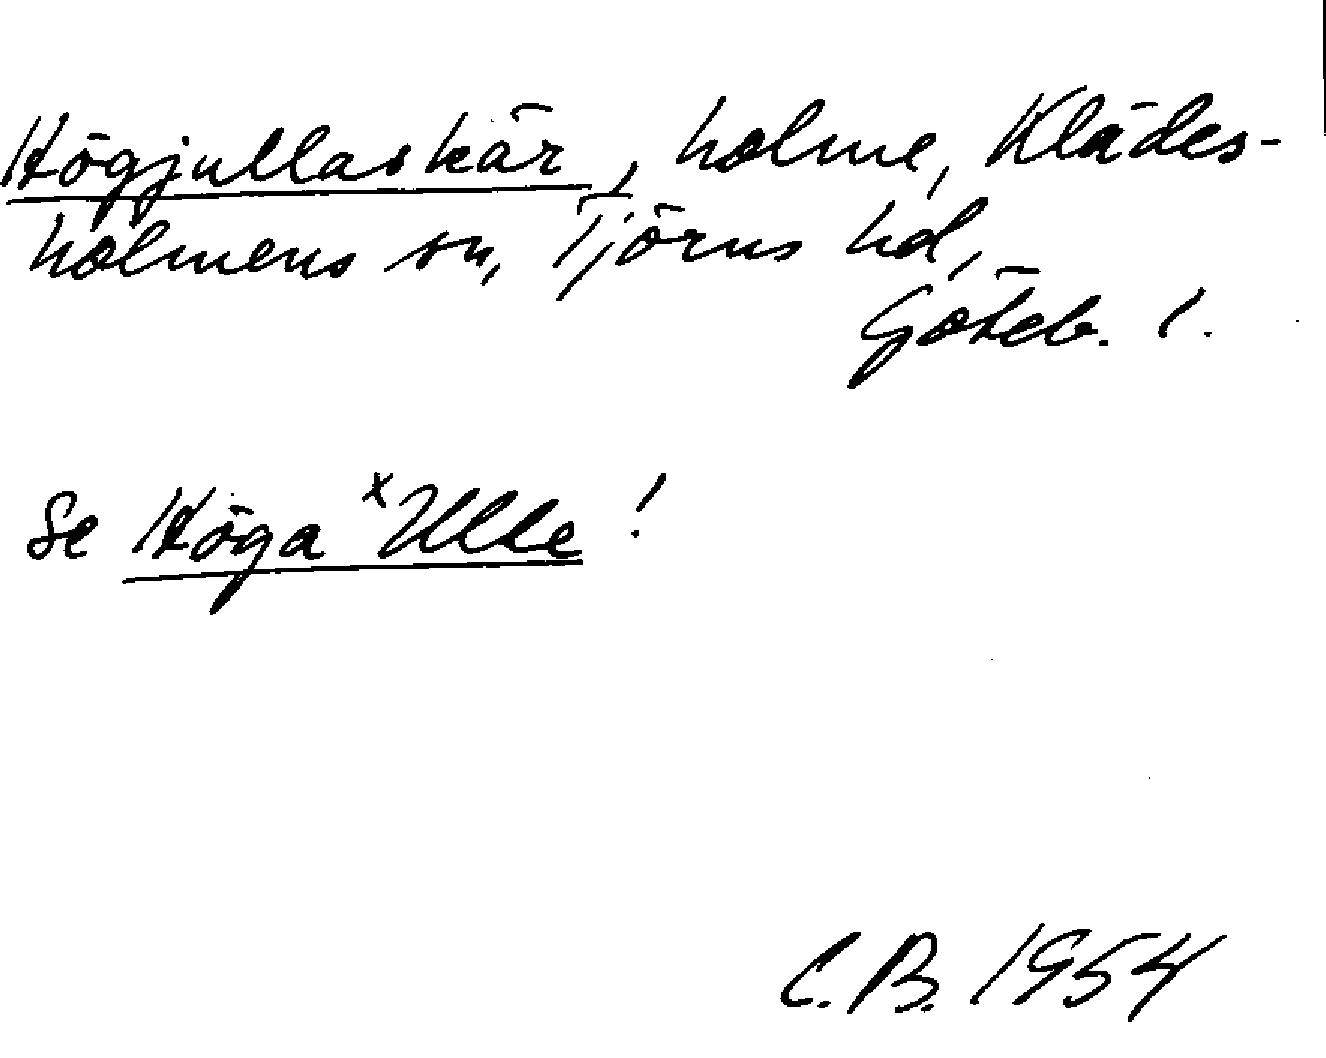 Högjullaskär, holme, Klädes-
holmens sn, Tjörns hd,
Göteb. l.
Se Höga ˣUlle !
C.B. 1954